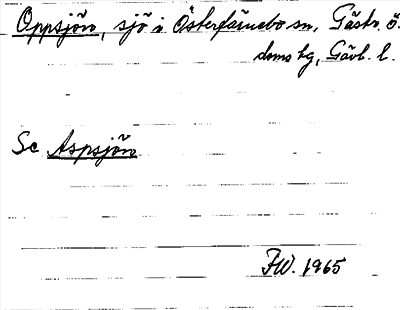 Oppsjön, sjö i Österfärnebo sn, Gästr. ö.
doms hg, Gävl. l.
Se Aspsjön
FW. 1965